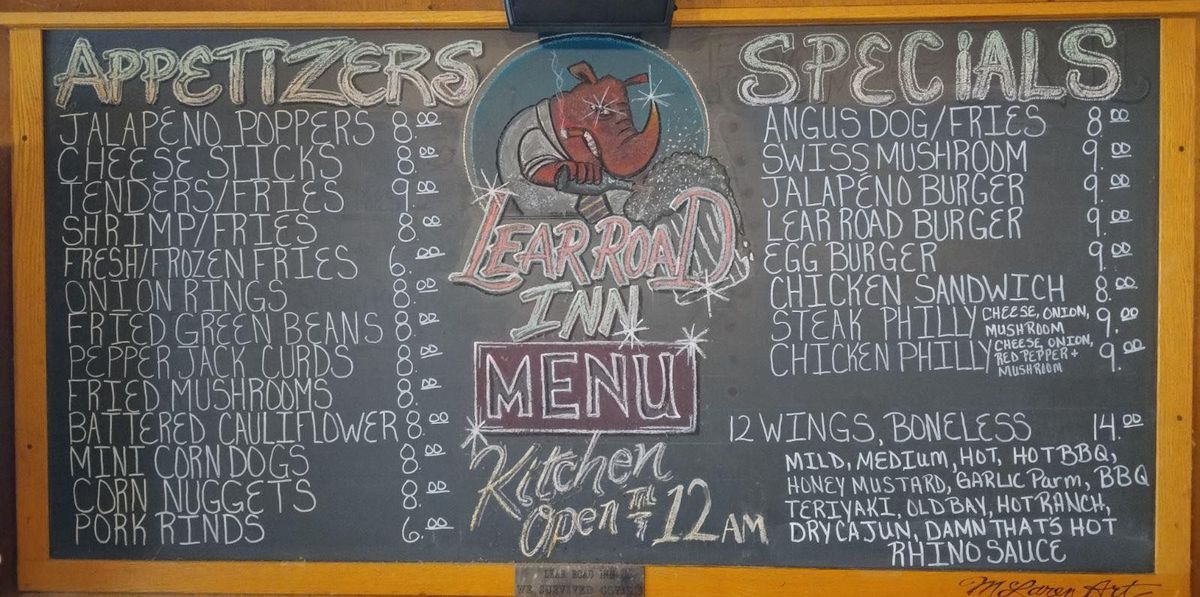 APPETIZERS
JALAPEÑO POPPERS 8.00
CHEESE STICKS 8.00
TENDERS/FRIES 9.00
SHRIMP/FRIES 8.00
FRESH/FROZEN FRIES 6.00
ONION RINGS 8.00
FRIED GREEN BEANS 8.00
PEPPER JACK CURDS 8.00
FRIED MUSHROOMS 8.00
BATTERED CAULIFLOWER 8.00
MINI CORN DOGS 8.00
CORN NUGGETS 8.00
PORK RINDS 6.00
LEAR ROAD
INN
MENU
Kitchen
Open TIL 12 AM
SPECIALS
ANGUS DOG/FRIES 8.00
SWISS MUSHROOM 9.00
JALAPEÑO BURGER 9.00
LEAR ROAD BURGER 9.00
EGG BURGER 9.00
CHICKEN SANDWICH 8.00
STEAK PHILLY/CHEESE, ONION, MUSHROOM 9.00
CHICKEN PHILLY/CHEESE, ONION, RED PEPPER + MUSHROOM 9.00
12 WINGS, BONELESS 14.00
MILD, MEDIUM, HOT, HOT BBQ,
HONEY MUSTARD, GARLIC Parm, BBQ
TERIYAKI, OLD BAY, HOT RANCH,
DRY CAJUN, DAMN THAT'S HOT
RHINO SAUCE
LEAR ROAD INN
WE SURVIVED
McLaren Art